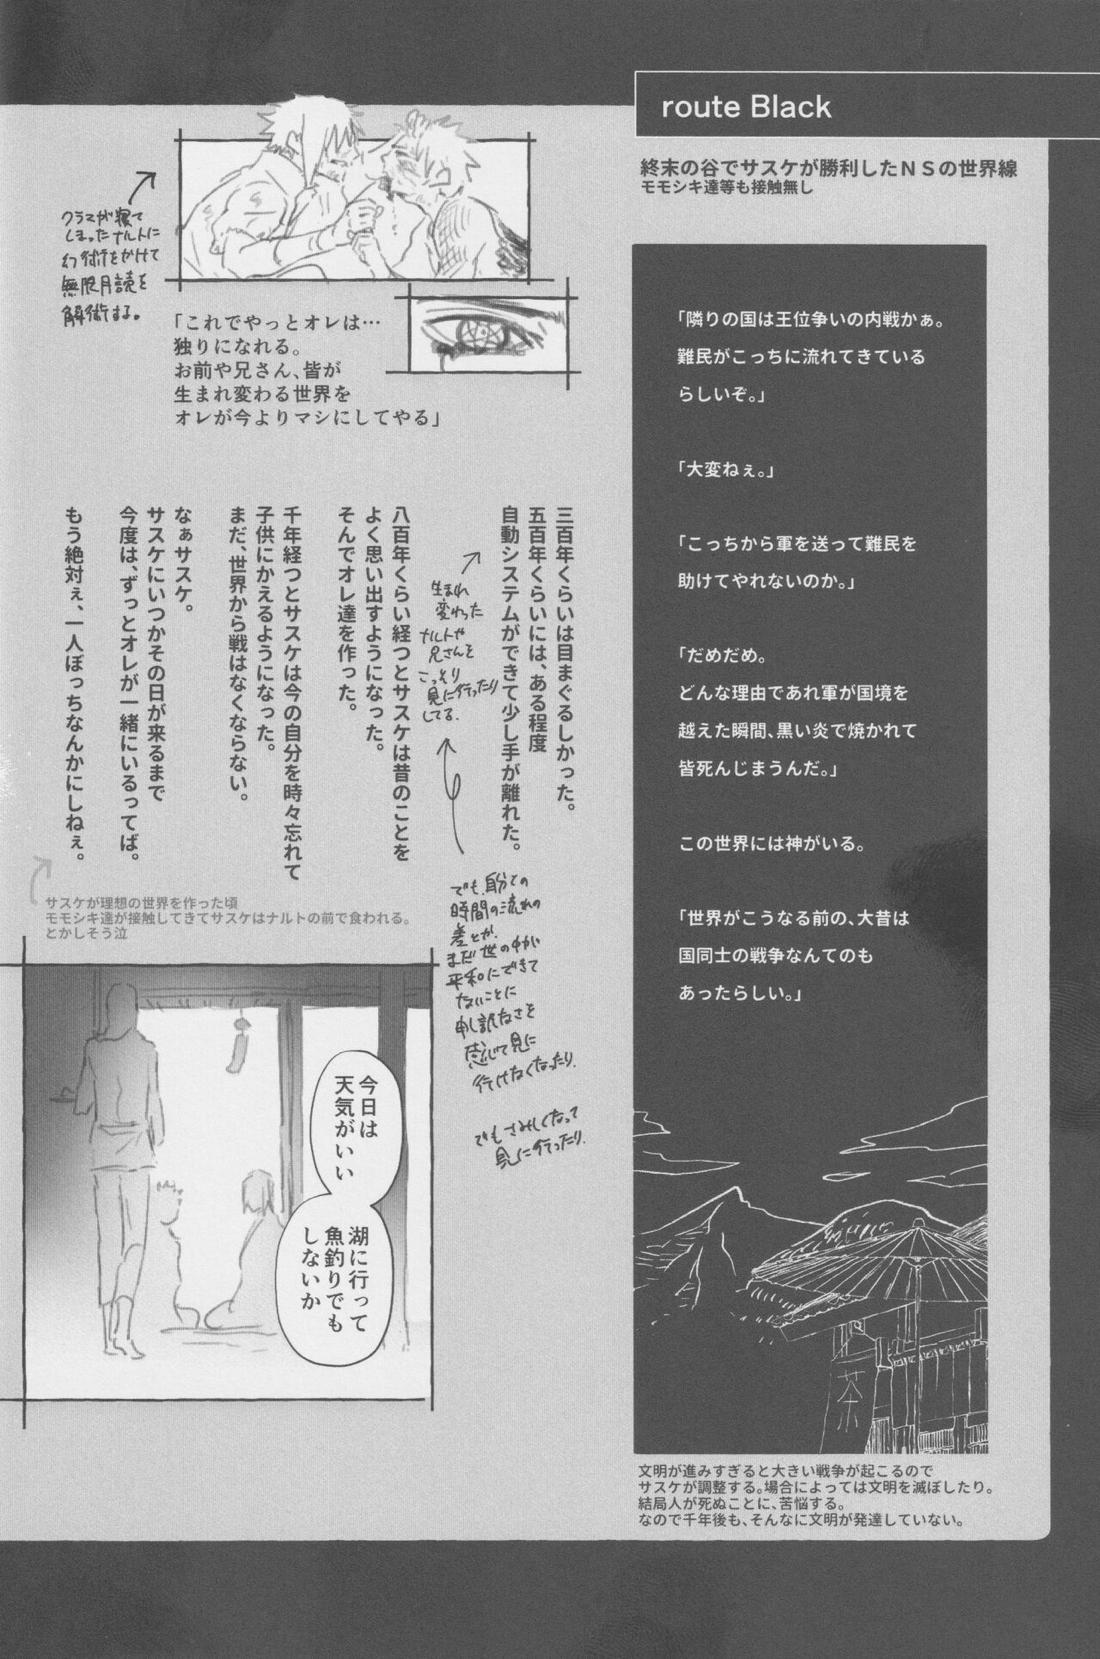 route Black
終末の谷でサスケが勝利したＮＳの世界線
モモシキ達等も接触無し
「隣りの国は王位争いの内戦かぁ。
難民がこっちに流れてきている
らしいぞ。」
「大変ねぇ。」
「こっちから軍を送って難民を
助けてやれないのか。」
「だめだめ。
どんな理由であれ軍が国境を
越えた瞬間、黒い炎で焼かれて
皆死んじまうんだ。」
この世界には神がいる。
「世界がこうなる前の、大昔は
国同士の戦争なんてのも
あったらしい。」
茶
文明が進みすぎると大きい戦争が起こるので
サスケが調整する。場合によっては文明を滅ぼしたり。
結局人が死ぬことに、苦悩する。
なので千年後も、そんなに文明が発達していない。
クラマが寝て
しまったナルトに
幻術をかけて
無限月読を
解術する。
「これでやっとオレは…
独りになれる。
お前や兄さん、皆が
生まれ変わる世界を
オレが今よりマシにしてやる」
三百年くらいは目まぐるしかった。
五百年くらいには、ある程度
自動システムができて少し手が離れた。
生まれ
変わった
ナルトや
兄さんを
こっそり
見に行ったり
してる。
でも、自分との
時間の流れの
差とか、
まだ世の中が
平和にできて
ないことに
申し訳なさを
感じて見に
行けなくなったり。
でもさみしくなって
見に行ったり。
八百年くらい経つとサスケは昔のことを
よく思い出すようになった。
そんでオレ達を作った。
千年経つとサスケは今の自分を時々忘れて
子供にかえるようになった。
まだ、世界から戦はなくならない。
なぁサスケ。
サスケにいつかその日が来るまで
今度は、ずっとオレが一緒にいるってば。
もう絶対ぇ、一人ぼっちなんかにしねぇ。
サスケが理想の世界を作った頃
モモシキ達が接触してきてサスケはナルトの前で食われる。
とかしそう泣
今日は
天気がいい
湖に行って
魚釣りでも
しないか